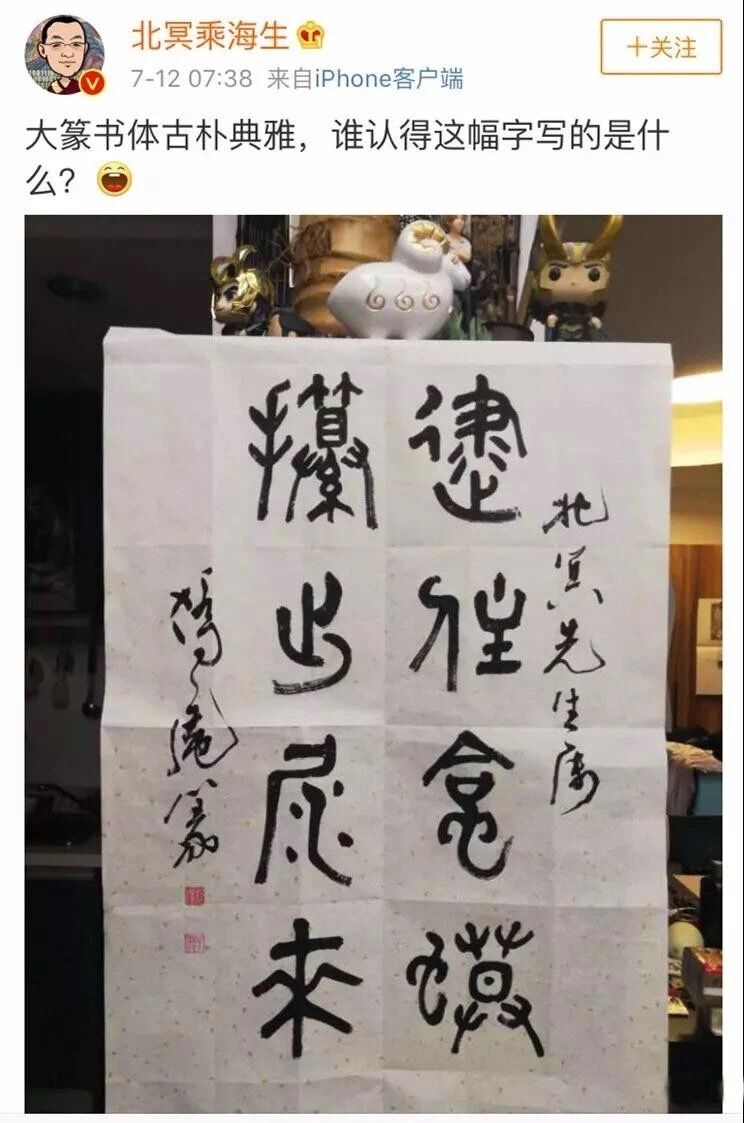 北冥乘海生
+关注
7-12 07:38 来自iPhone客户端
大篆书体古朴典雅，谁认得这幅字写的是什
么？
666
北冥先生属
逮住蛤蟆
攥出尿来
庵篆